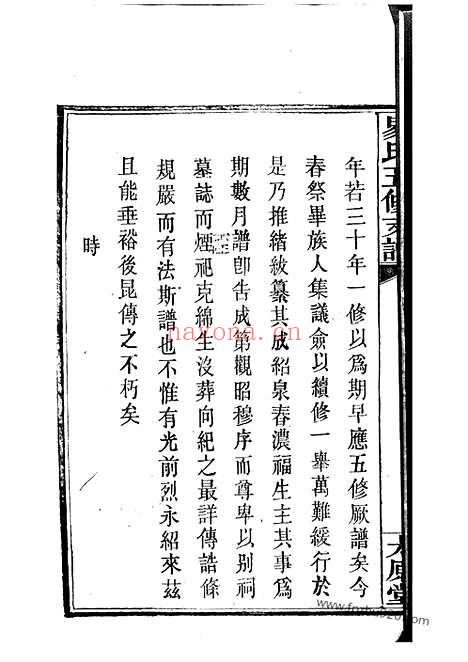 易氏五修支譜
太原堂
年若三十年一修以爲期早應五修厥譜矣今
春祭畢族人集議僉以續修一舉萬難緩行於
是乃推緒紱纂其成紹泉春濃福生主其事爲
期數月譜卽告成第觀昭穆序而尊卑以別祠
墓誌而煙祀克綿生沒葬向紀之最詳傳誥條
規嚴而有法斯譜也不惟有光前烈永紹來茲
且能垂裕後昆傳之不朽矣
時
nayona.cn
www.fnzhub520.com